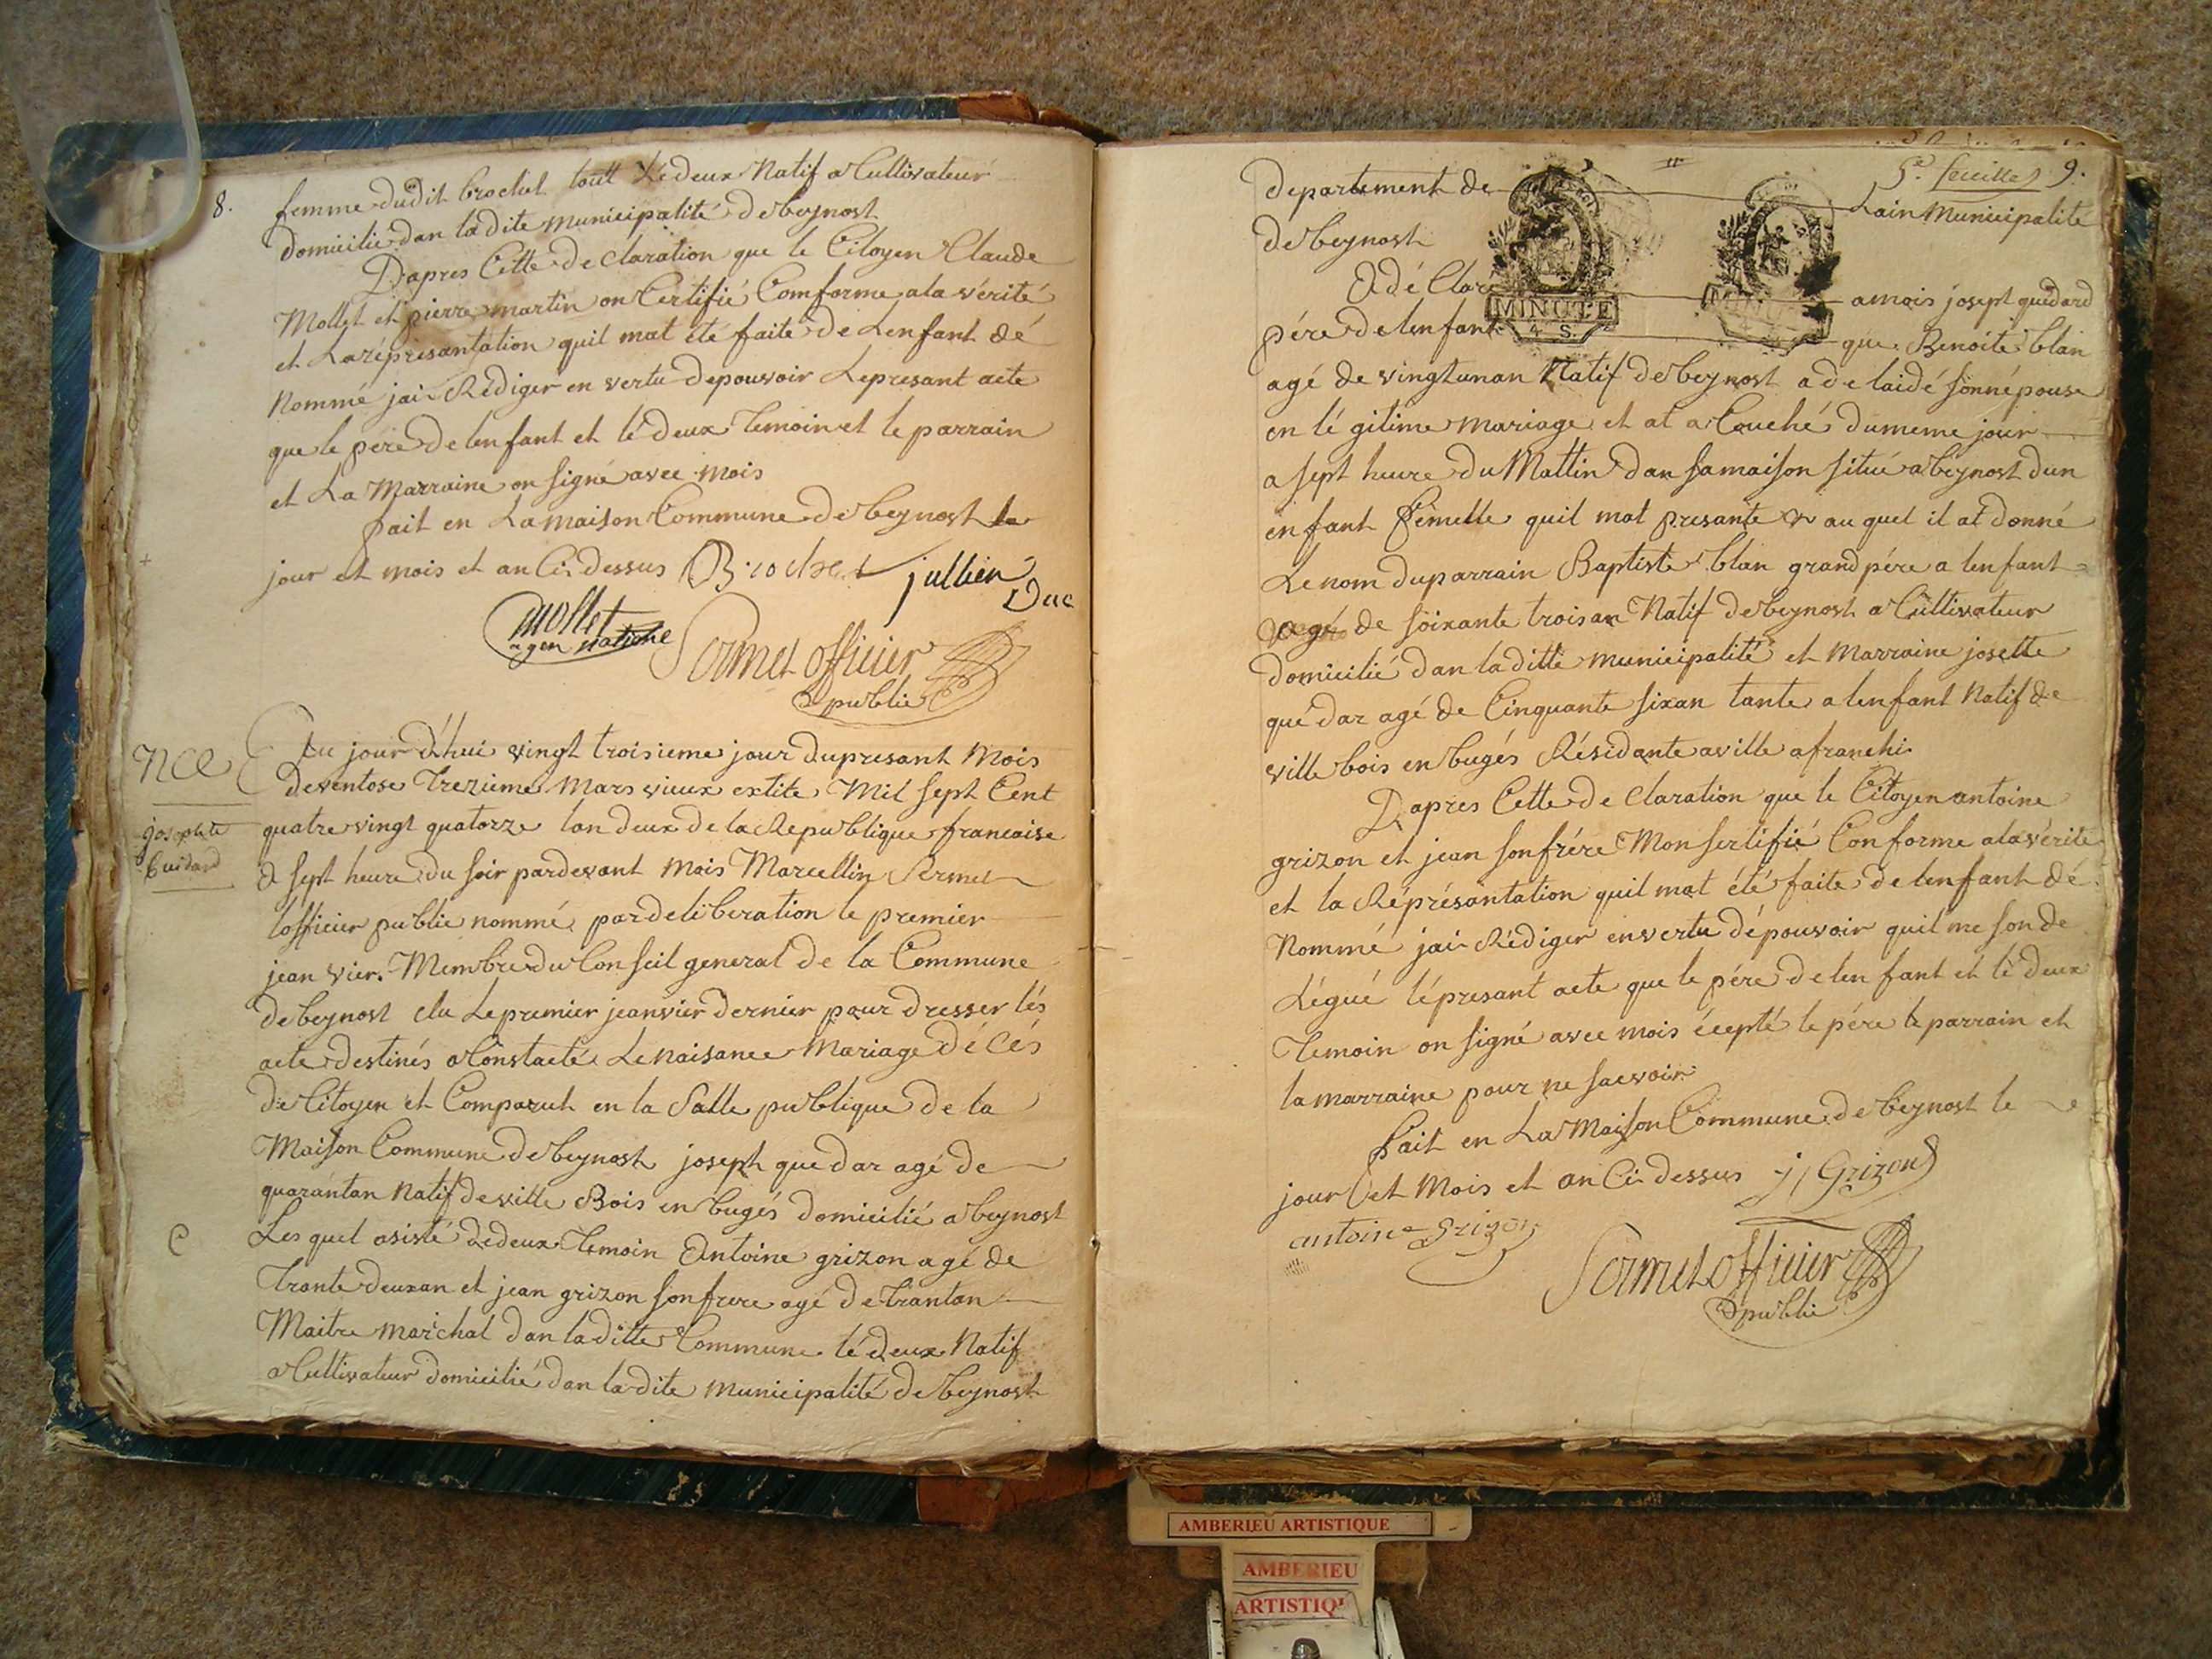 8.
femme dudit brochet toutt lédeux Natif a Cultivateur
domicilié dan la dite municipalité de beynost
D'apres Cette de claration que le Citoyen Claude
Mollet et pierre martin on Certifié Comforme ala vérité
et Laréprésantation quil mat été faite de Lenfant dé
Nommé jai Rédiger en vertu depouvoir Lepresant acte
que le pere de lenfant et lé deux Temoin et le parrain
et La Marraine on signé avec mois
fait en La maison Commune de beynost le
jour et mois et an Ci dessus Brochet jullien
Duc
mollet
agen natione
Sermet officier
public
NCe
josephte
Guidard
Au jour d'hui vingt troisieme jour dupresant Mois
deventose Trezieme Mars vieux extile Mil sept Cent
quatre vingt quatorze lan deux de la Republique francaise
a sept heure du soir pardevant mois Marcellin Sermet
lofficier public nommé par deliberation le premier
jean vier. Membre du Conseil general de la Commune
de beynost elu Lepremier jeanvier dernier pour dresser lés
acte destinés a Constacté Lenaisance Mariage décés
de Citoyen et Comparut en la Salle publique de la
Maison Commune de beynost joseph quedar agé de
quarantan natif de ville Bois en bugés domicilié a beynost
Les quel asisté dedeux Temoin Antoine grizon agé de
Trante deuxan et jean grizon sonfrere agé de Trantan
Maitre maréchal dan laditte Commune lé deux Natif
a Cultivateur domicilié dan ladite municipalité de beynost
5e. feuille 9.
departement de Lain Municipalité
de beynost
A dé Claré amois josept quedard
MINUTE
4. S.
pére de lenfant que Benoite blan
agé de vingtunan Natif de beynost a de laidé sonnépouse
en lé gitime mariage et at a Couché dumeme jour
a sept heure du Mattin dan samaison situé a beynost dun
enfant femelle quil mat presante au quel il at donné
Le nom duparrain Baptiste blan grand pére a lenfant
agé de soixante troisan Natif de beynost a Cultivateur
domicilié dan laditte municipalité et Marraine josette
quédar agé de Cinquante sixan tante a lenfant Natif de
ville bois en bugés Résidante a ville afranchi
D'apres Cette de claration que le Citoyen antoine
grizon et jean sonfrére Monsertifié Conforme ala vérité
et la Répréséntation quil mat été faite de lenfant dé
Nommé jai Rédiger envertu dépouvoir quil me son de
Légué lépresant acte que le pére de lenfant et lé deux
Temoin on signé avec mois écepté le pére le parrain et
la marraine pour ne sacvoir
fait en La Maison Commune de beynost le
jour et Mois et an Ci dessus jj Grizon
antoine Grizon
Sermet officier
public
AMBERIEU ARTISTIQUE
AMBERIEU
ARTISTIQ